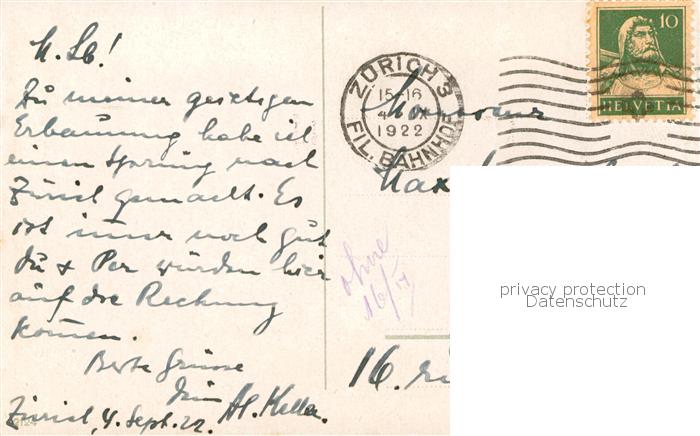 M. Lb!
Zu meiner geistigen
Erbauung habe ich
einen Sprung nach
Zürich gemacht. Es
ist immer noch gut
du & Per würden hier
auf die Rechnung
kommen.
Beste Grüsse
Dein M. Keller.
Zürich, 4. Sept. 22.
ZÜRICH 3
15-16
4 IX
1922
FIL. BAHNHOF
10
HELVETIA
Monsieur
Max
ohne
16/
16.
privacy protection
Datenschutz